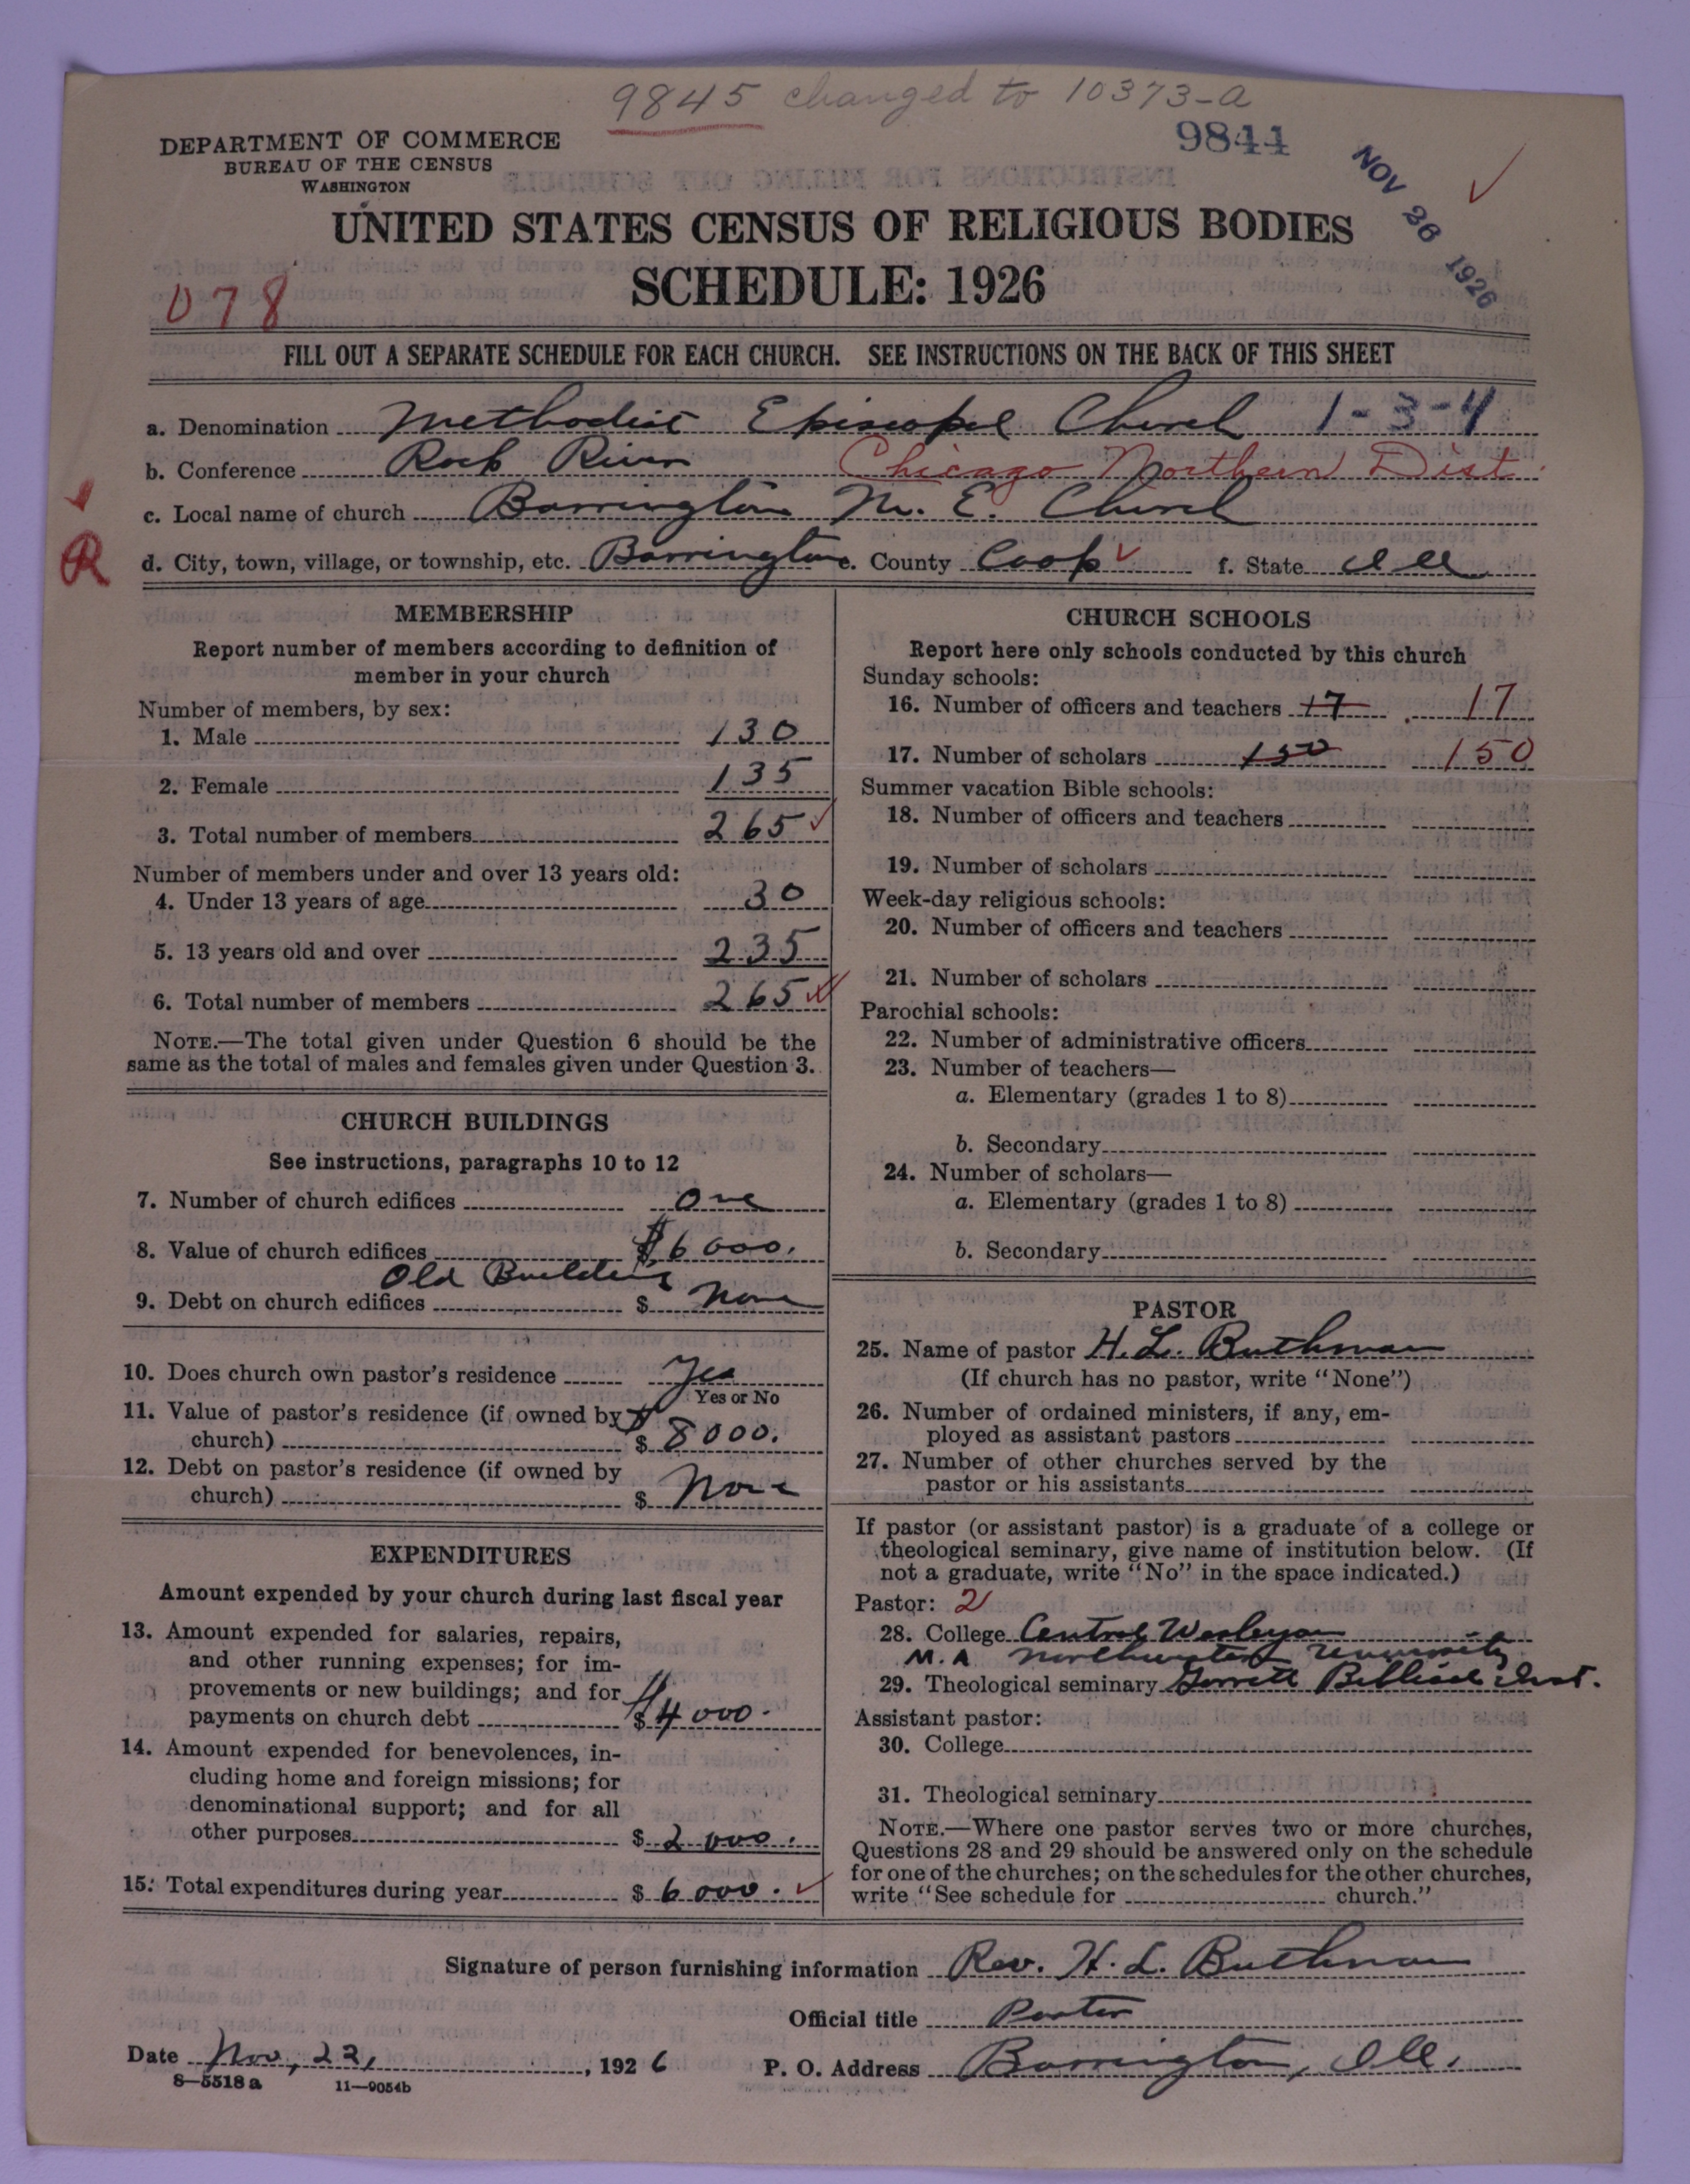 9845 changed to 10373-a
DEPARTMENT OF COMMERCE
BUREAU OF THE CENSUS
WASHINGTON
9844
NOV 26 1926
UNITED STATES CENSUS OF RELIGIOUS BODIES
SCHEDULE: 1926
078
FILL OUT A SEPARATE SCHEDULE FOR EACH CHURCH. SEE INSTRUCTIONS ON THE BACK OF THIS SHEET
a. Denomination Methodist Episcopal Church 1-3-4
b. Conference Rock River Chicago Northern Dist.
c. Local name of church Barrington M. E. Church
R
d. City, town, village, or township, etc. Barrington e. County Cook f. State Ill
MEMBERSHIP
Report number of members according to definition of
member in your church
Number of members, by sex:
1. Male 130
2. Female 135
3. Total number of members 265
Number of members under and over 13 years old:
4. Under 13 years of age 30
5. 13 years old and over 235
6. Total number of members 265
NOTE.—The total given under Question 6 should be the
same as the total of males and females given under Question 3.
CHURCH BUILDINGS
See instructions, paragraphs 10 to 12
7. Number of church edifices One
8. Value of church edifices $6000.
Old Building
9. Debt on church edifices $ None
10. Does church own pastor's residence Yes
Yes or No
11. Value of pastor's residence (if owned by
church) $ 8000.
12. Debt on pastor's residence (if owned by
church) $ None
EXPENDITURES
Amount expended by your church during last fiscal year
13. Amount expended for salaries, repairs,
and other running expenses; for im-
provements or new buildings; and for
payments on church debt $ 4000.
14. Amount expended for benevolences, in-
cluding home and foreign missions; for
denominational support; and for all
other purposes $ 2000.
15. Total expenditures during year $ 6000.
CHURCH SCHOOLS
Report here only schools conducted by this church
Sunday schools:
16. Number of officers and teachers 17 17
17. Number of scholars 150 150
Summer vacation Bible schools:
18. Number of officers and teachers
19. Number of scholars
Week-day religious schools:
20. Number of officers and teachers
21. Number of scholars
Parochial schools:
22. Number of administrative officers
23. Number of teachers—
a. Elementary (grades 1 to 8)
b. Secondary
24. Number of scholars—
a. Elementary (grades 1 to 8)
b. Secondary
PASTOR
25. Name of pastor H. L. Buthman
(If church has no pastor, write "None")
26. Number of ordained ministers, if any, em-
ployed as assistant pastors
27. Number of other churches served by the
pastor or his assistants
If pastor (or assistant pastor) is a graduate of a college or
theological seminary, give name of institution below. (If
not a graduate, write "No" in the space indicated.)
Pastor: 2
28. College Central Wesleyan
M. A. Northwestern University
29. Theological seminary Garrett Biblical Inst.
Assistant pastor:
30. College
31. Theological seminary
NOTE.—Where one pastor serves two or more churches,
Questions 28 and 29 should be answered only on the schedule
for one of the churches; on the schedules for the other churches,
write "See schedule for church."
Signature of person furnishing information Rev. H. L. Buthman
Official title Pastor
Date Nov, 22, 1926 P. O. Address Barrington, Ill.
8—5518 a 11—9054b